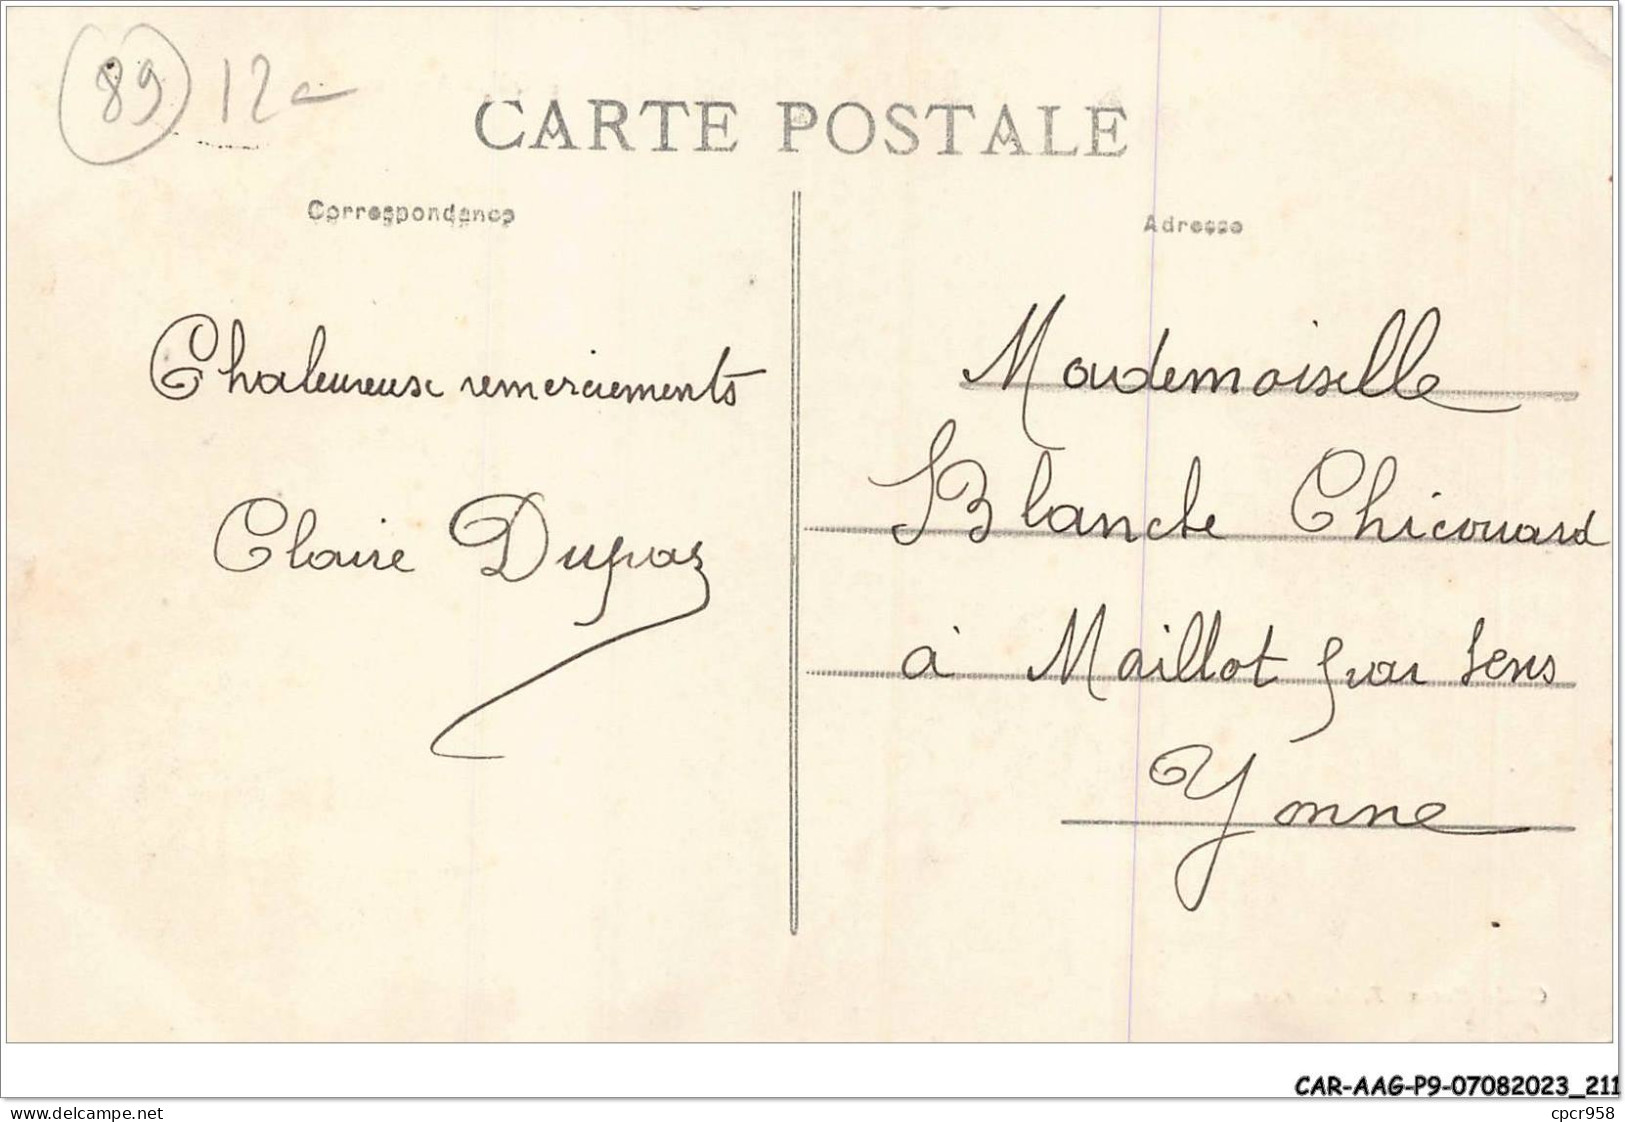 89 12
CARTE POSTALE
Correspondance
Adresse
Chaleureuse remerciements
Claire Dupas
Mademoiselle
Blanche Chicouard
à Maillot par Sens
Yonne
CAR-AAG-P9-07082023_211
www.delcampe.net
cpcr958